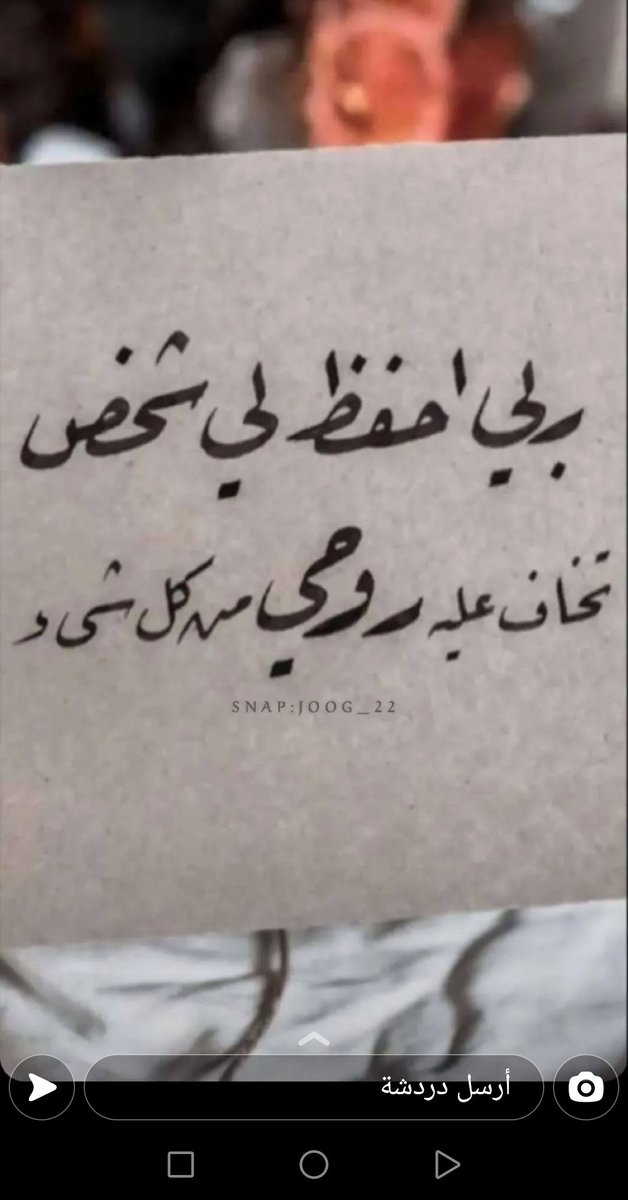 ربي احفظ لي شخص
تخاف عليه روحي من كل شيء
SNAP:JOOG_22
أرسل دردشة